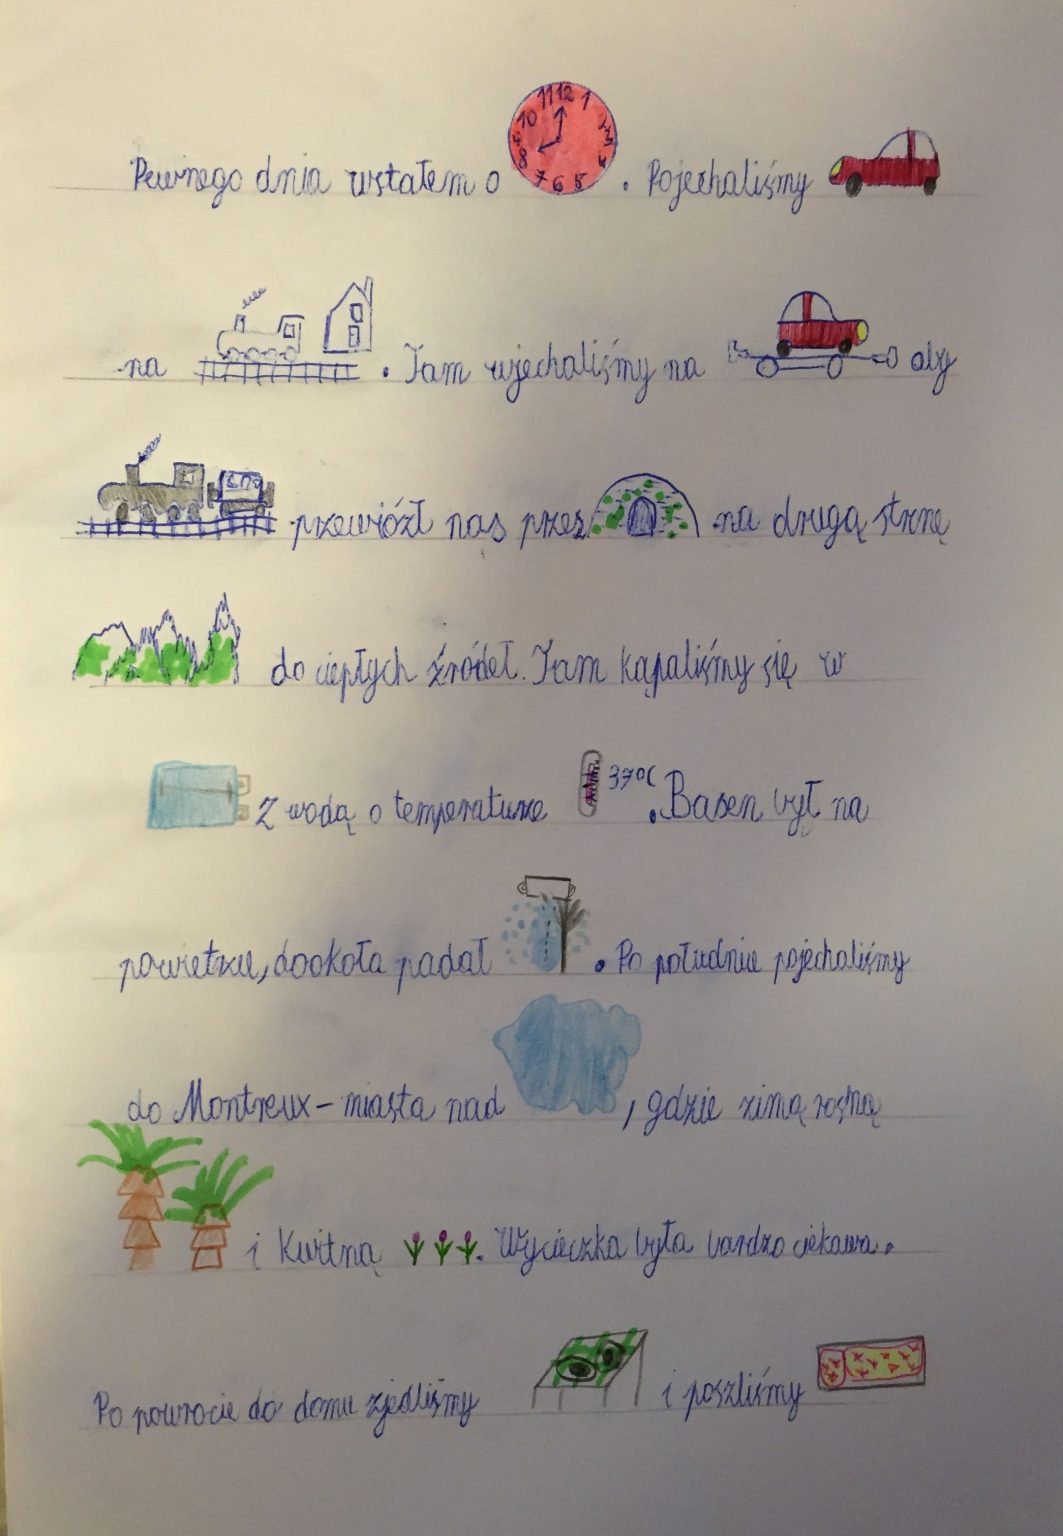 11 12 1 10 2 9 3 8 4 7 6 5
Pewnego dnia wstałem o . Pojechaliśmy
na . Tam wjechaliśmy na aby
przewiózł nas przez na drugą strnę
do ciepłych źródeł. Tam kąpaliśmy się w
z wodą o temperaturze 37°C . Basen był na
powietrzu, dookoła padał . Po południu pojechaliśmy
do Montreux – miasta nad , gdzie zimą rosną
i kwitną . Wycieczka była bardzo ciekawa.
Po powrocie do domu zjedliśmy i poszliśmy